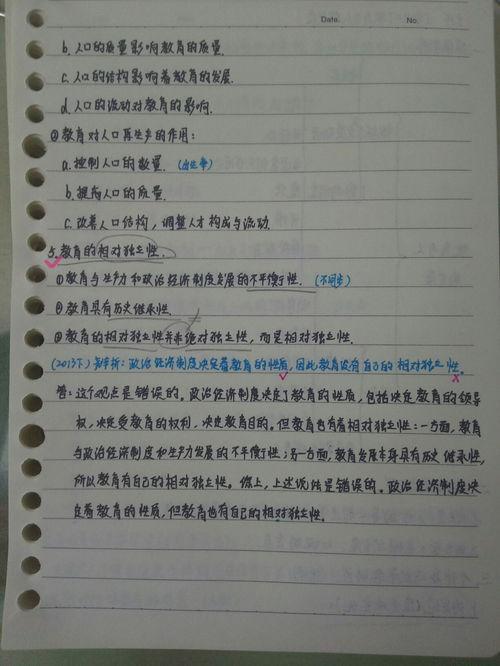 Date. No.
b. 人口的质量影响教育的质量.
c. 人口的结构影响着教育的发展.
d. 人口的流动对教育的影响.
②教育对人口再生产的作用:
a. 控制人口的数量. (出生率)
b. 提高人口的质量.
c. 改善人口结构, 调整人才构成与流动.
5. 教育的相对独立性.
①教育与生产力和政治经济制度发展的不平衡性. (不同步)
②教育具有历史继承性.
③教育的相对独立性并非绝对独立性, 而是相对独立性.
(2013下) 辨析: 政治经济制度决定着教育的性质, 因此教育没有自己的相对独立性.
答: 这个观点是错误的. 政治经济制度决定了教育的性质, 包括决定教育的领导
权, 决定受教育的权利, 决定教育目的. 但教育也有着相对独立性: 一方面, 教育
与政治经济制度和生产力发展的不平衡性; 另一方面, 教育发展本身具有历史继承性,
所以教育有自己的相对独立性. 综上, 上述说法是错误的. 政治经济制度决
定着教育的性质, 但教育也有自己的相对独立性.